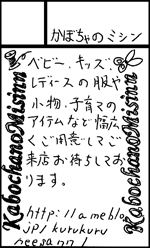 かぼちゃのミシン
KabochanoMisinn
ベビー、キッズ、
レディースの服や
小物、子育ての
アイテムなど幅広
くご用意してご
来店お待ちしてお
ります。
http://ameblo.
jp/kurukuru
neesann/
KabochanoMisinn